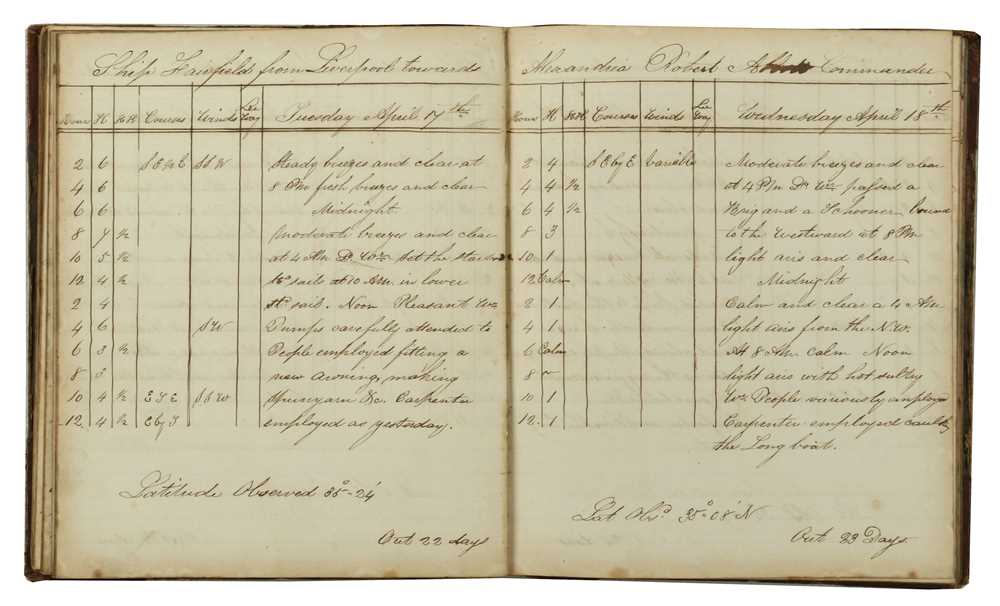 Ship Fairfield from Liverpool towards
Hour H ½K Courses Winds Lee Way Tuesday April 17th
2 6 S E ½ E S b W Steady breezes and clear at
4 6 8 PM fresh breezes and clear
6 6 Midnight.
8 7 ½ Moderate breezes and clear
10 5 ½ at 4 Am Do Wr Set the
12 4 ½ sail at 10 Am. in lower
2 4 sail. Noon Pleasant Wr
4 6 S W Pumps carefully attended to
6 3 ½ People employed fitting a
8 3 new awning, making
10 4 ½ E S E S S W Spunyarn &c. Carpenter
12 4 ½ E by S employed as yesterday.
Latitude Observed 35°-24'
Out 22 days
Alexandria Robert Commander
Hour H ½K Courses Winds Lee Way Wednesday April 18th
2 4 S E by E Variable Moderate breezes and clear
4 4 ½ at 4 P/m Do Wr passed a
6 4 ½ Brig and a Schooner bound
8 3 to the Westward at 8 Pm
10 1 light airs and clear
12 Calm Midnight
2 1 Calm and clear a 4 Am
4 1 light airs from the N.W.
6 Calm At 8 Am Calm Noon
8 " light airs with hot sultry
10 1 Wr People variously employd
12 1 Carpenter employed caulking
the Long boat.
Lat Obsd 35°-08'N
Out 23 Days